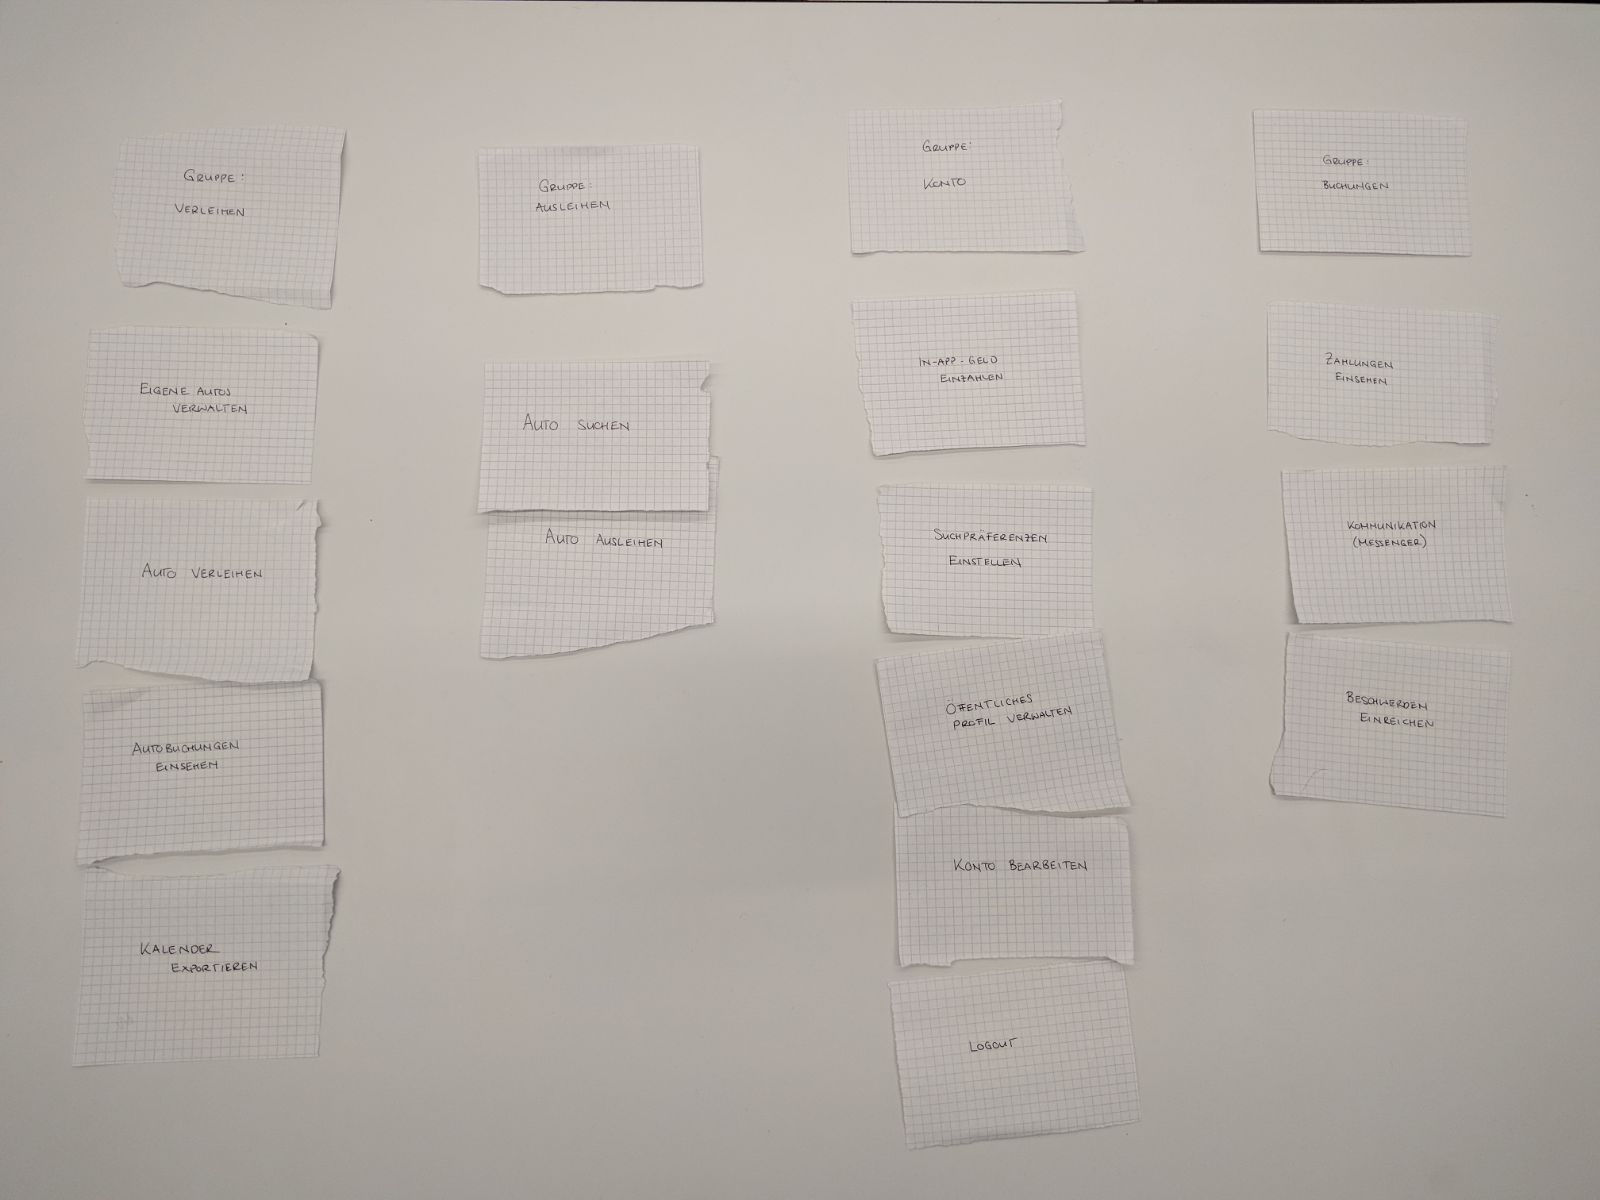 GRUPPE:
VERLEIHEN
EIGENE AUTOS
VERWALTEN
AUTO VERLEIHEN
AUTOBUCHUNGEN
EINSEHEN
KALENDER
EXPORTIEREN
GRUPPE:
AUSLEIHEN
AUTO SUCHEN
AUTO AUSLEIHEN
GRUPPE:
KONTO
IN-APP-GELD
EINZAHLEN
SUCHPRÄFERENZEN
EINSTELLEN
ÖFFENTLICHES
PROFIL VERWALTEN
KONTO BEARBEITEN
LOGOUT
GRUPPE:
BUCHUNGEN
ZAHLUNGEN
EINSEHEN
KOMMUNIKATION
(MESSENGER)
BESCHWERDEN
EINREICHEN